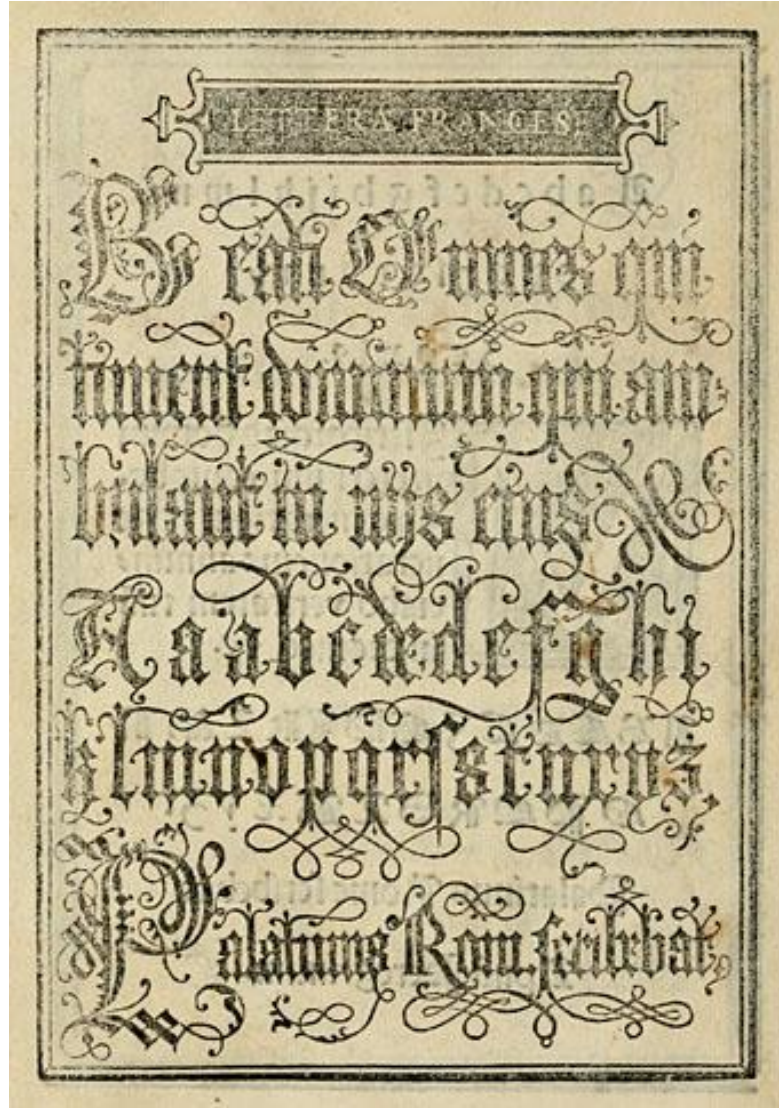 LETTERA FRANCESE
Beati Omnes qui
timent dominum qui am-
bulant in uijs eius
A a a b c d d e f g h i
k l m n o p q r ſ s t u x y z
Palatinus Rom. ſcribebat